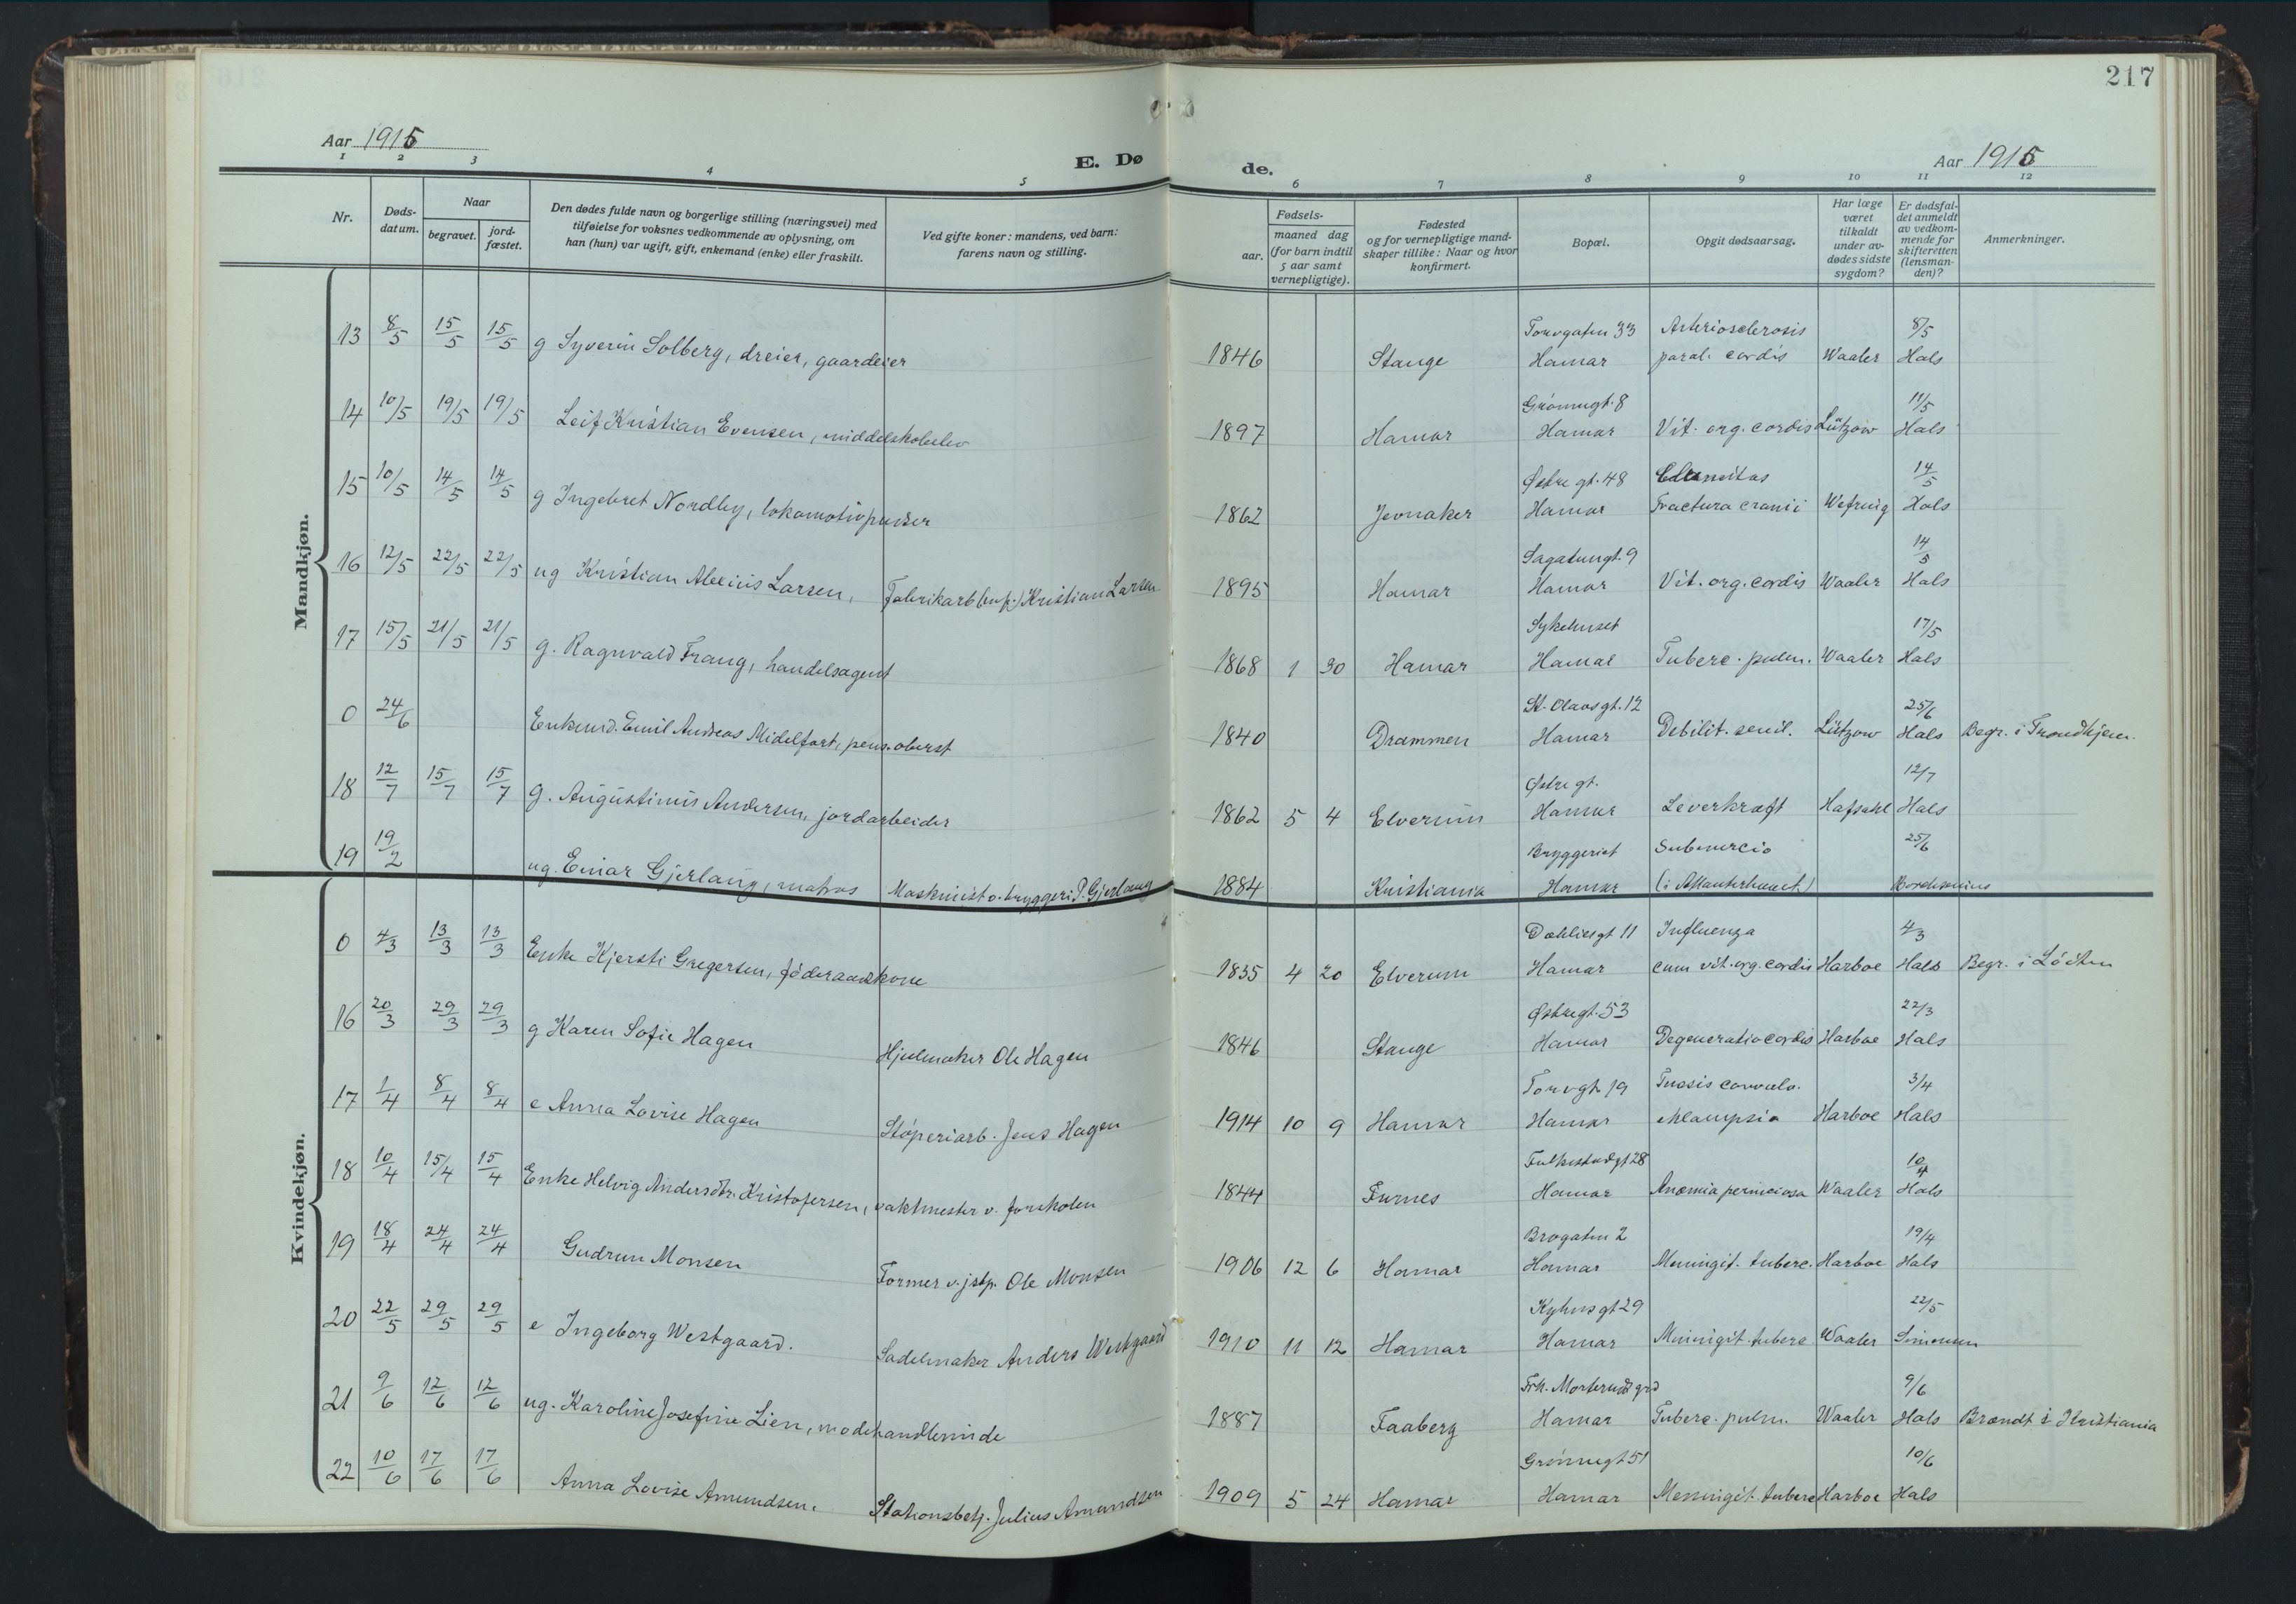 217
Aar 1915
E. Døde.
Aar 1915
1 2 3 4 5 6 7 8 9 10 11 12
Nr. Døds-datum. Naar begravet. jord-fæstet. Den dødes fulde navn og borgerlige stilling (næringsvei) med tilføielse for voksnes vedkommende av oplysning, om han (hun) var ugift, gift, enkemand (enke) eller fraskilt. Ved gifte koner: mandens, ved barn: farens navn og stilling. Fødsels- aar. maaned dag (for barn indtil 5 aar samt vernepligtige). Fødested og for vernepligtige mandskaper tillike: Naar og hvor konfirmert. Bopæl. Opgit dødsaarsag. Har læge været tilkaldt under avdødes sidste sygdom? Er dødsfaldet anmeldt av vedkommende for skifteretten (lensmanden)? Anmerkninger.
Mandkjøn.
13 8/5 15/5 15/5 g Syverin Solberg, dreier, gaardeier 1846 Stange Torvgaten 33 Hamar Arteriosclerosis paral. cordis Waaler 8/5 Hals
14 10/5 19/5 19/5 Leif Kristian Evensen, middelskoleelev 1897 Hamar Grönnegt. 8 Hamar Vit. org. cordis Lützow 11/5 Hals
15 10/5 14/5 14/5 g Ingebret Nordby, lokomotivpudser 1862 Jevnaker Østre gt. 48 Hamar Fractura cranii 14/5 Hals
16 12/5 22/5 22/5 ug Kristian Alexius Larsen, Fabrikarb. Kristian Larsen 1895 Hamar Sagatungt. 9 Hamar Vit. org. cordis Waaler 14/5 Hals
17 15/5 21/5 21/5 g. Ragnvald Frang, handelsagent 1868 1 30 Hamar Sykehuset Hamar Tuberc. pulm. Waaler 17/5 Hals
0 24/6 Enkemd. Emil Andreas Midelfart, pens. oberst 1840 Drammen St. Olavs gt. 12 Hamar Debilit. senil. Lützow 25/6 Hals Begr. i Trondhjem.
18 12/7 15/7 15/7 g. Augustinus Andersen, jordarbeider 1862 5 4 Elverum Østre gt. Hamar Leverkræft Hafsahl 12/7 Hals
19 19/2 ug. Einar Gjerlaug, matros Maskinist o. bryggeri P. Gjerlaug 1884 Kristiania Bryggeriet Hamar Submercio (i Atlanterhavet) 25/6
Kvindekjøn.
0 4/3 13/3 13/3 Enke Kjersti Gregersen, föderaadskone 1835 4 20 Elverum Dæhliesgt 11 Hamar Influenza cum vit. org. cordis Harboe 4/3 Hals Begr. i Löiten
16 20/3 29/3 29/3 g Karen Sofie Hagen Hjulmaker Ole Hagen 1846 Stange Østregt. 53 Hamar Degeneratio cordis Harboe 22/3 Hals
17 1/4 8/4 8/4 e Anna Lovise Hagen Støperiarb. Jens Hagen 1914 10 9 Hamar Torvgt. 19 Hamar Tussis convuls. eklampsia Harboe 3/4 Hals
18 10/4 15/4 15/4 Enke Helvig Andersdtr. Kristofersen, vaktmester v. forskolen 1844 Furnes Falkestadgt 28 Hamar Anæmia perniciosa Waaler 10/4 Hals
19 18/4 24/4 24/4 Gudrun Monsen Former v. jstp. Ole Monsen 1906 12 6 Hamar Brogaten 2 Hamar Meningit. tuberc. Harboe 19/4 Hals
20 22/5 29/5 29/5 e Ingeborg Westgaard. Sadelmaker Anders Westgaard 1910 11 12 Hamar Kyhnsgt 29 Hamar Meningit. tuberc Waaler 22/5 Simonsen
21 9/6 12/6 12/6 ug. Karoline Josefine Lien, modehandlerinde 1887 Faaberg Frk. Morteruds grd Hamar Tuberc. pulm. Waaler 9/6 Hals Brændt i Kristiania
22 10/6 17/6 17/6 Anna Lovise Amundsen. Stationsbetj. Julius Amundsen 1909 5 24 Hamar Grönnegt 51 Hamar Meningit. tuberc Harboe 10/6 Hals